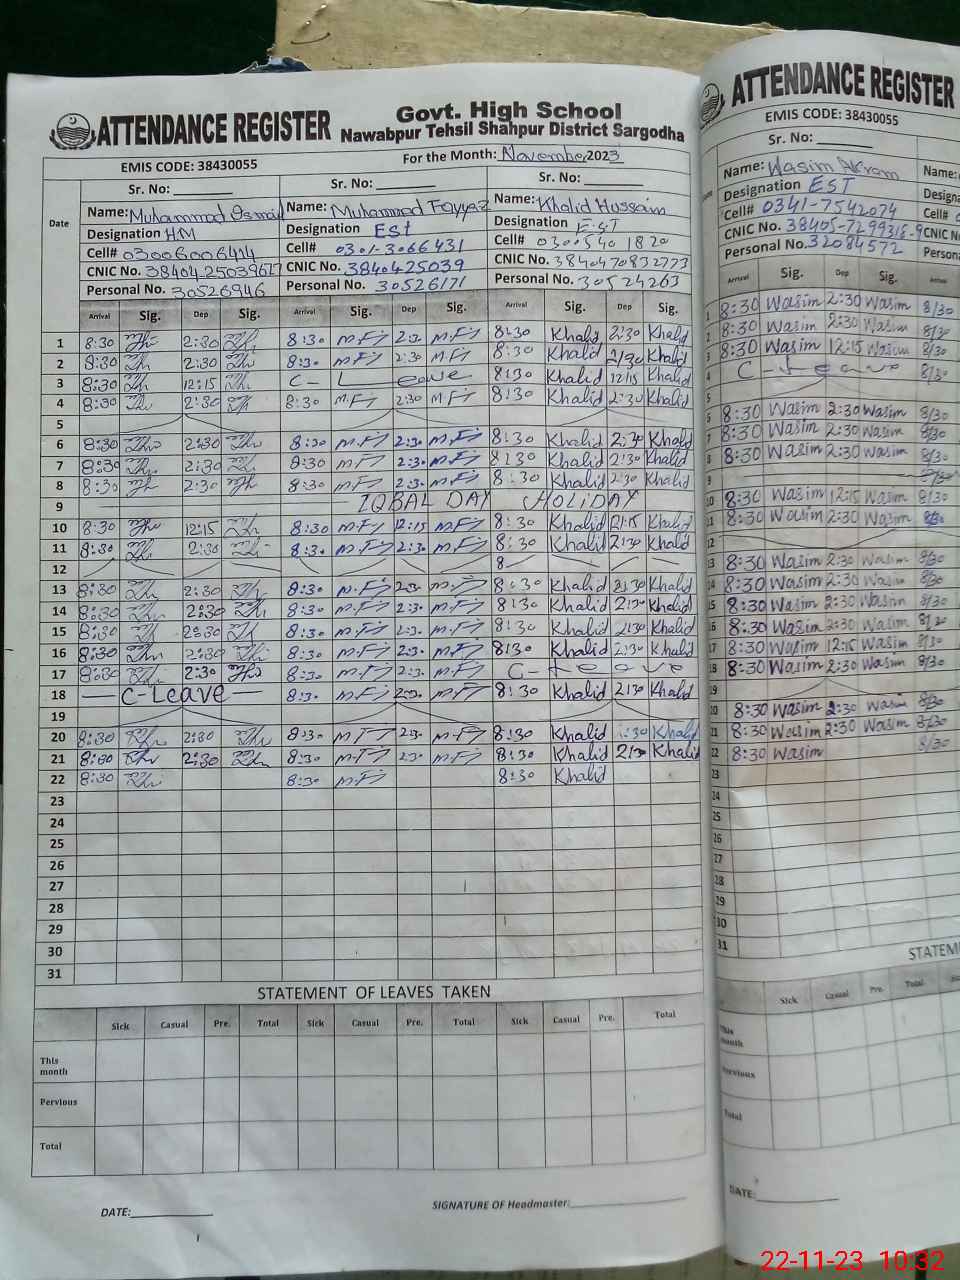 ATTENDANCE REGISTER
Govt. High School
Nawabpur Tehsil Shahpur District Sargodha
EMIS CODE: 38430055
For the Month: November 2023
Sr. No: Sr. No: Sr. No:
Date
Name: Muhammad Name: Muhammad Fayyaz Name: Khalid Hussain
Designation HM Designation Est Designation EST
Cell# 03006006414 Cell# 0301-3066431 Cell# 0300540 1820
CNIC No. CNIC No. 3840425039 CNIC No. 3840470832773
Personal No. 30526946 Personal No. 30526171 Personal No. 30524263
Arrival Sig. Dep Sig. Arrival Sig. Dep Sig. Arrival Sig. Dep Sig.
1 8:30 2:30 8:30 M.F 2:30 M.F 8:30 Khalid 2:30 Khalid
2 8:30 2:30 8:30 M.F 2:30 M.F 8:30 Khalid 2:30 Khalid
3 8:30 12:15 C-Leave 8:30 Khalid 12:15 Khalid
4 8:30 2:30 8:30 M.F 2:30 M.F 8:30 Khalid 2:30 Khalid
5
6 8:30 2:30 8:30 M.F 2:30 M.F 8:30 Khalid 2:30 Khalid
7 8:30 2:30 8:30 M.F 2:30 M.F 8:30 Khalid 2:30 Khalid
8 8:30 2:30 8:30 M.F 2:30 M.F 8:30 Khalid 2:30 Khalid
9 IQBAL DAY HOLIDAY
10 8:30 12:15 8:30 M.F 12:15 M.F 8:30 Khalid Khalid
11 8:30 2:30 8:30 M.F 2:30 M.F 8:30 Khalid 2:30 Khalid
12 8
13 8:30 2:30 8:30 M.F 2:30 M.F 8:30 Khalid 2:30 Khalid
14 8:30 2:30 8:30 M.F 2:30 M.F 8:30 Khalid 2:30 Khalid
15 8:30 2:30 8:30 M.F 2:30 M.F 8:30 Khalid 2:30 Khalid
16 8:30 2:30 8:30 M.F 2:30 M.F 8:30 Khalid 2:30 Khalid
17 8:30 2:30 8:30 M.F 2:30 M.F C-Leave
18 C-Leave 8:30 M.F 2:30 M.F 8:30 Khalid 2:30 Khalid
19
20 8:30 2:30 8:30 M.F 2:30 M.F 8:30 Khalid 2:30 Khalid
21 8:30 2:30 8:30 M.F 2:30 M.F 8:30 Khalid 2:30 Khalid
22 8:30 8:30 M.F 8:30 Khalid
23
24
25
26
27
28
29
30
31
STATEMENT OF LEAVES TAKEN
Sick Casual Pre. Total Sick Casual Pre. Total Sick Casual Pre. Total
This month
Pervious
Total
DATE: SIGNATURE OF Headmaster:
ATTENDANCE REGISTER
EMIS CODE: 38430055
Sr. No:
Name: Wasim Akram
Designation EST
Cell# 0341-7542074
CNIC No.
Personal No. 32084572
Arrival Sig. Dep Sig. Arrival
8:30 Wasim 2:30 Wasim 8/30
8:30 Wasim 2:30 Wasim 8/30
8:30 Wasim 12:15 Wasim 8/30
C-Leave 8/30
8:30 Wasim 2:30 Wasim 8/30
8:30 Wasim 2:30 Wasim 8/30
8:30 Wasim 2:30 Wasim 8/30
10 8:30 Wasim 12:15 Wasim 8/30
11 8:30 Wasim 2:30 Wasim 8:30
12
13 8:30 Wasim 2:30 Wasim 8/30
14 8:30 Wasim 2:30 Wasim 8/30
15 8:30 Wasim 2:30 Wasim 8/30
16 8:30 Wasim 2:30 Wasim 8/30
17 8:30 Wasim 12:15 Wasim 8/30
18 8:30 Wasim 2:30 Wasim 8/30
19
20 8:30 Wasim 2:30 Wasim 8/30
21 8:30 Wasim 2:30 Wasim 8/30
22 8:30 Wasim 8/30
23
24
25
26
27
28
29
30
31
Sick Casual Pre. Total
This month
Pervious
Total
DATE:
22-11-23 10:32